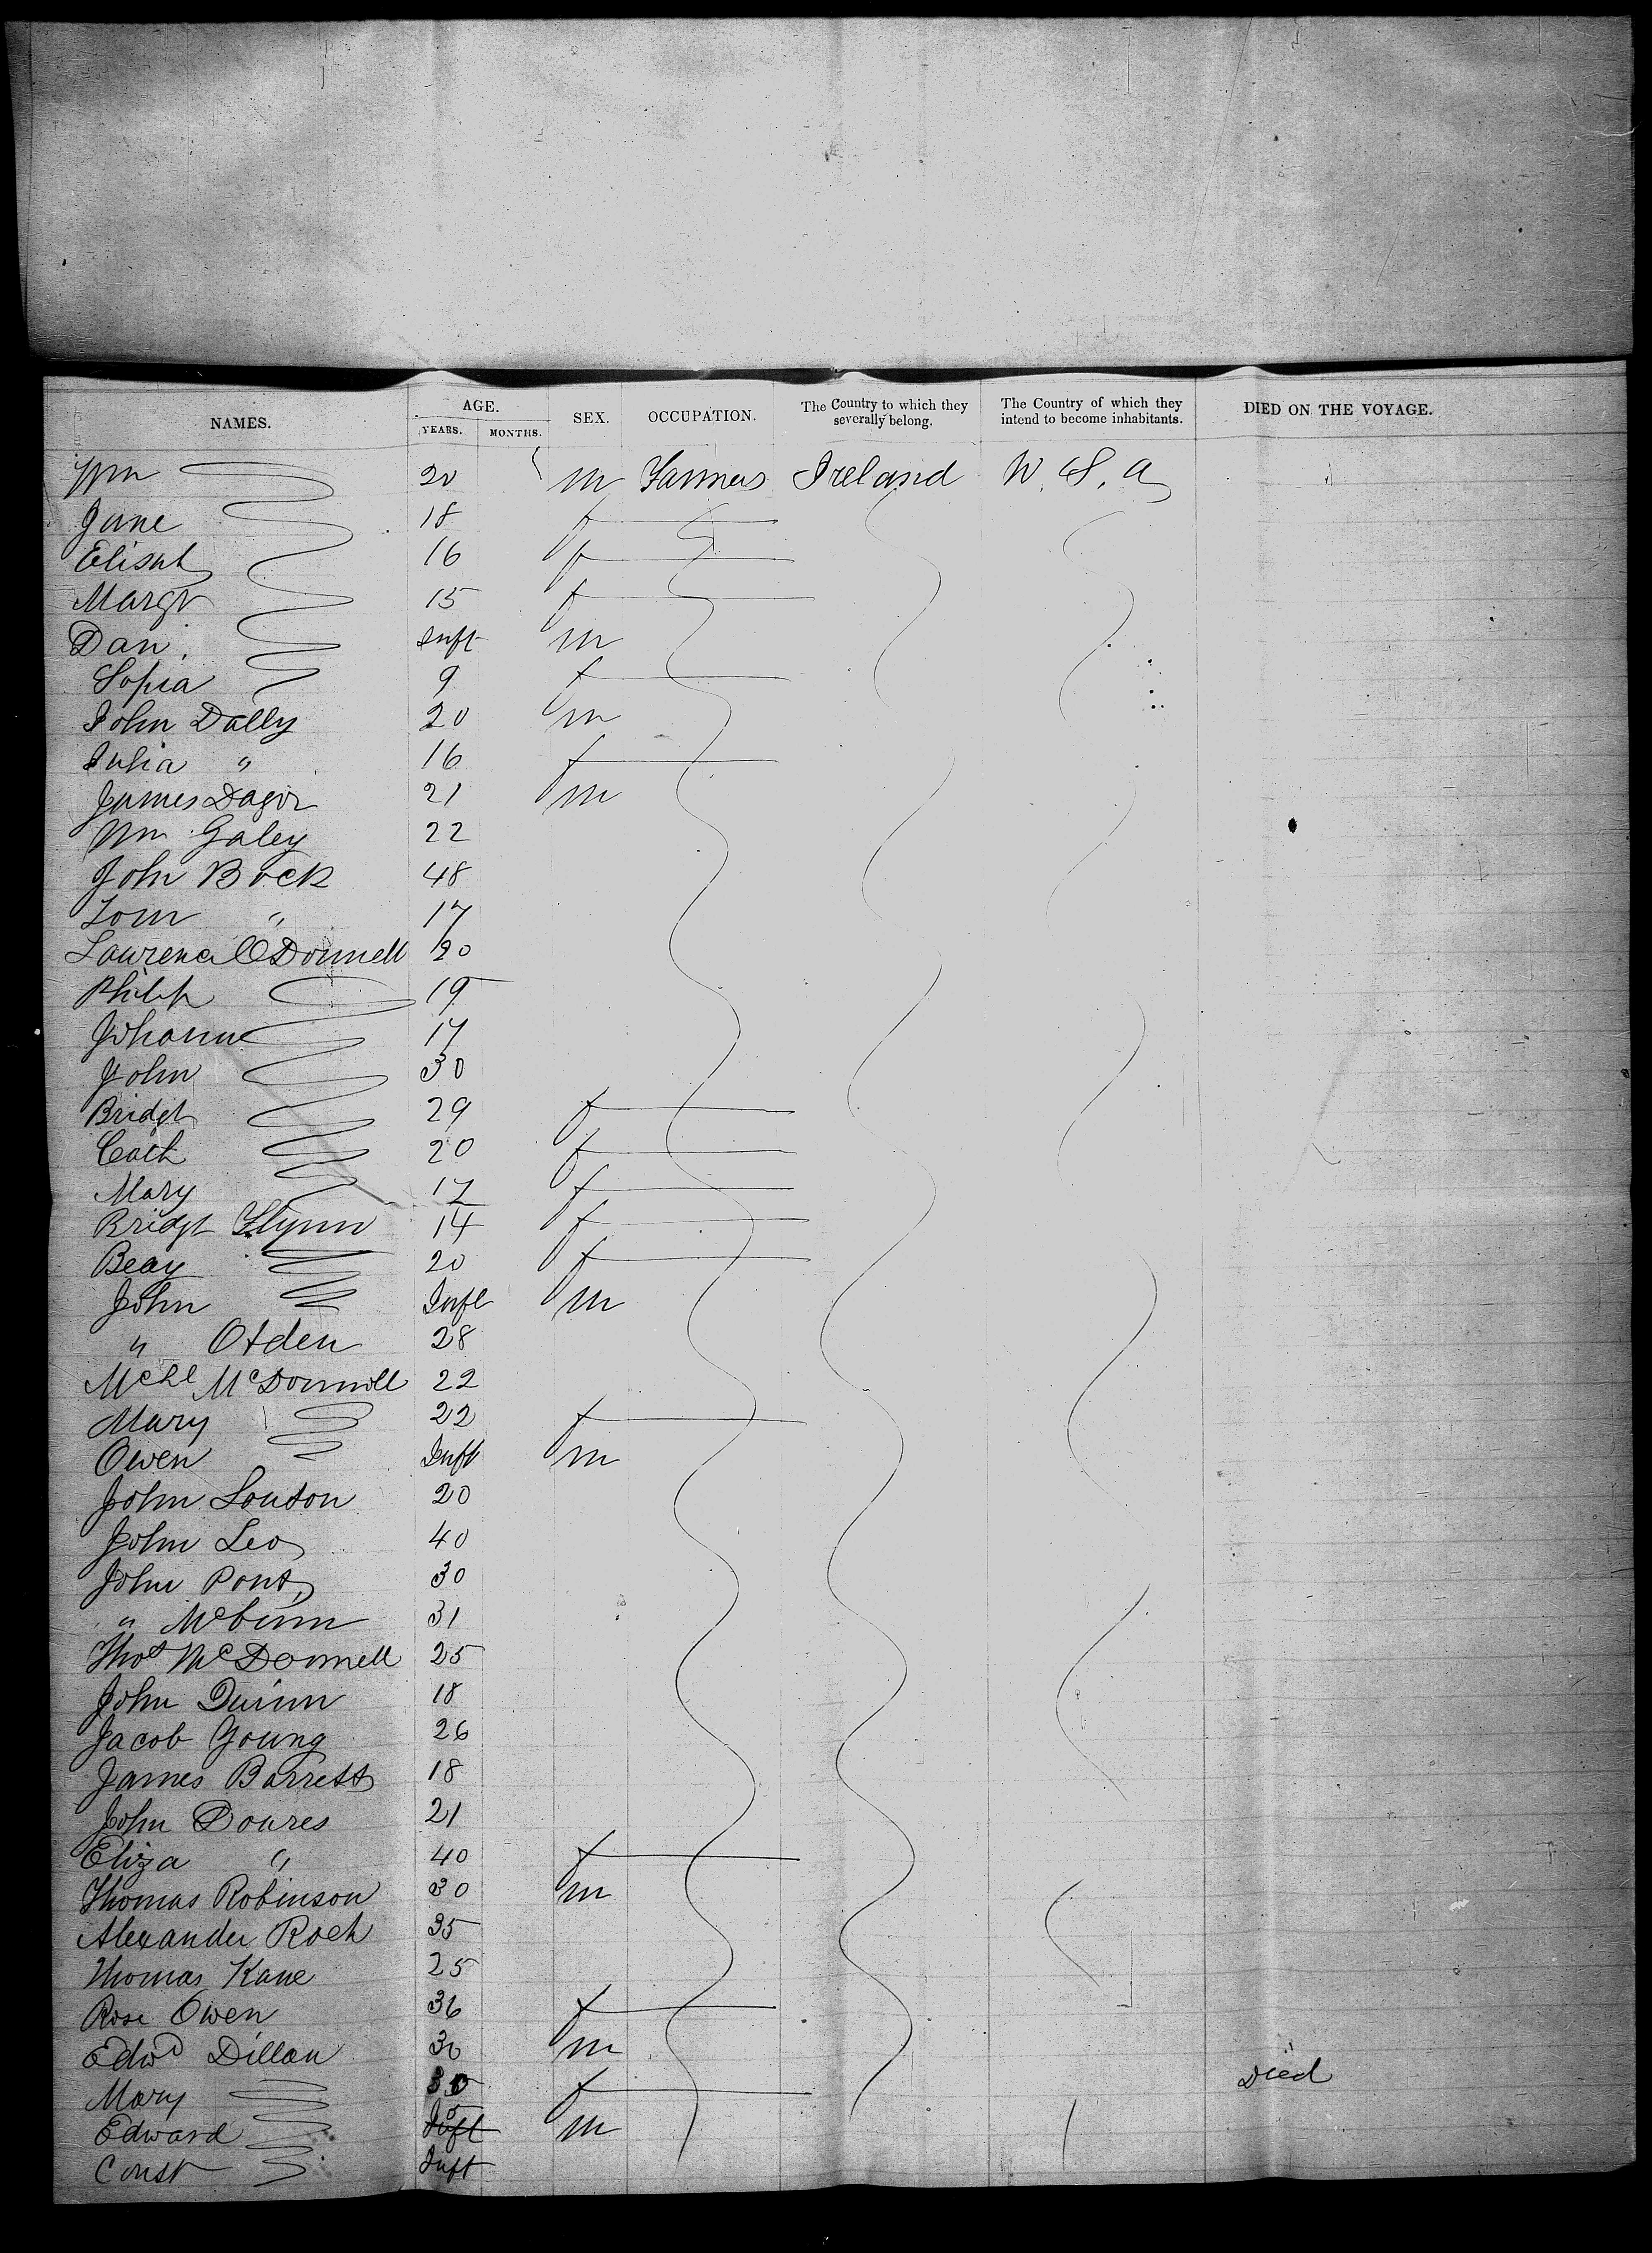 NAMES. AGE. YEARS. MONTHS. SEX. OCCUPATION. The Country to which they severally belong. The Country of which they intend to become inhabitants. DIED ON THE VOYAGE.
Wm 20 m Farmers Ireland U. S. A
Jane 18 f
Elisabt 16 f
Margt 15 f
Dan. Inft m
Sopia 9 f
John Dally 20 m
Julia " 16 f
James Dagor 21 m
Wm Galey 22
John Bock 48
Tom " 17
Laurence O'Donnell 20
Philip 19
Johanne 17
John 30
Bridgt 29 f
Cath 20 f
Mary 17 f
Bridgt Flynn 14 f
Beay 20 f
John Inft m
" Otden 28
Mchl McDonnell 22
Mary 22 f
Owen Inft m
John Louton 20
John Leo 40
John Pont 30
" 31
Thos McDonnell 25
John Quinn 18
Jacob Young 26
James Barrett 18
John Doures 21
Eliza " 40 f
Thomas Robinson 30 m
Alexander Roch 35
Thomas Kane 25
Rose Owen 36 f
Edwd Dillan 30 m
Mary 30 f Died
Edward Inft 5 m
Const Inft